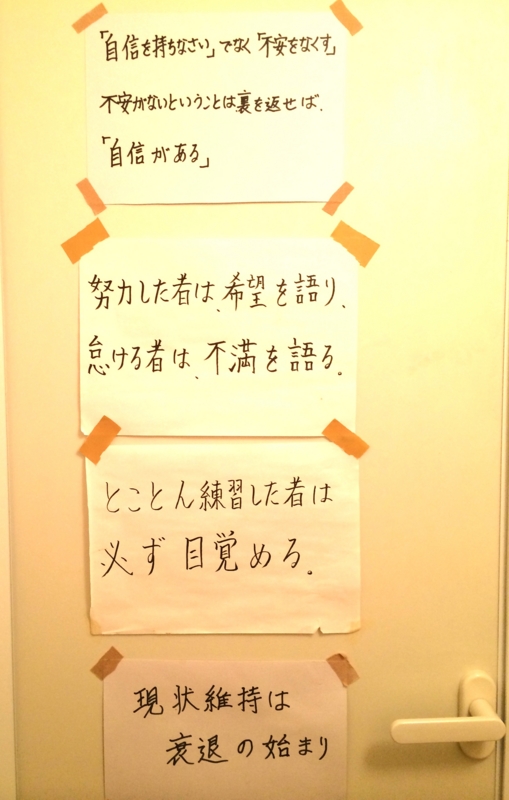 「自信を持ちなさい」でなく「不安をなくす」
不安がないということは、裏を返せば、
「自信がある」
努力した者は、希望を語り、
怠ける者は、不満を語る。
とことん練習した者は
必ず目覚める。
現状維持は
衰退の始まり